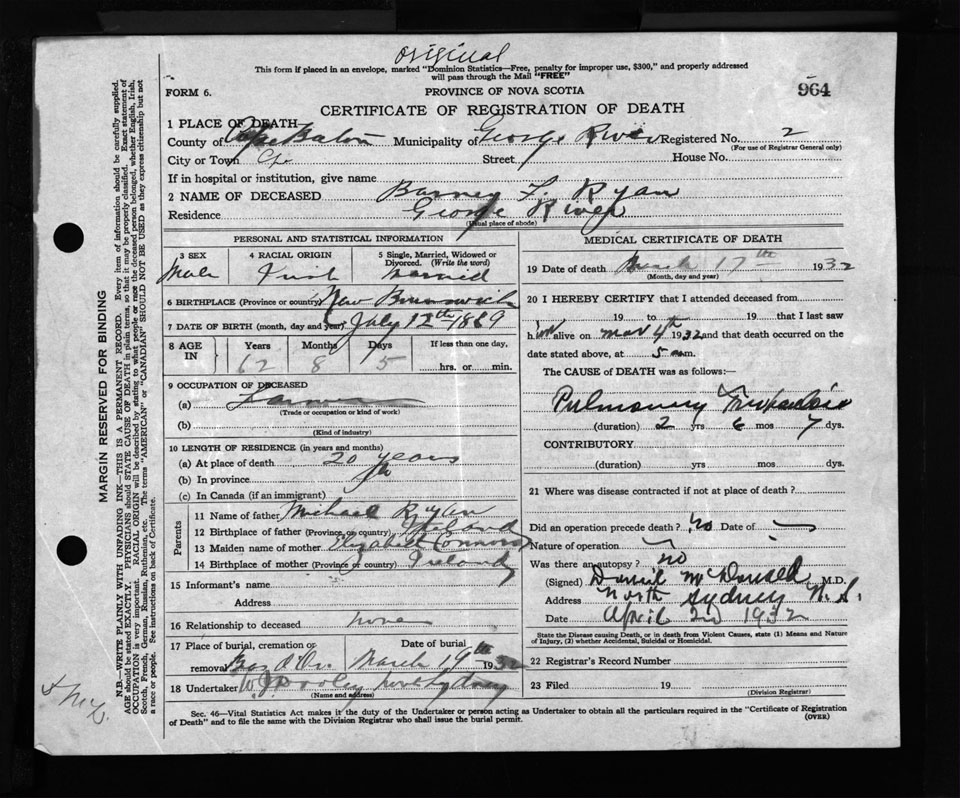 Original
This form if placed in an envelope, marked "Dominion Statistics—Free, penalty for improper use, $300," and properly addressed
will pass through the Mail "FREE"
FORM 6.
PROVINCE OF NOVA SCOTIA
964
CERTIFICATE OF REGISTRATION OF DEATH
1 PLACE OF DEATH
County of Cape Breton Municipality of George River Registered No. 2
(For use of Registrar General only)
City or Town Street House No.
If in hospital or institution, give name
2 NAME OF DECEASED Barney F. Ryan
Residence George River
(Usual place of abode)
PERSONAL AND STATISTICAL INFORMATION
3 SEX
Male
4 RACIAL ORIGIN
Irish
5 Single, Married, Widowed or
Divorced. (Write the word)
Married
6 BIRTHPLACE (Province or country) New Brunswick
7 DATE OF BIRTH (month, day and year) July 12th 1869
8 AGE IN
Years Months Days If less than one day,
62 8 5 hrs. or min.
9 OCCUPATION OF DECEASED
(a) Farmer
(Trade or occupation or kind of work)
(b)
(Kind of industry)
10 LENGTH OF RESIDENCE (in years and months)
(a) At place of death 20 years
(b) In province
(c) In Canada (if an immigrant)
Parents
11 Name of father Michael Ryan
12 Birthplace of father (Province or country) Ireland
13 Maiden name of mother Elizabeth Connors
14 Birthplace of mother (Province or country) Ireland
15 Informant's name
Address
16 Relationship to deceased none
17 Place of burial, cremation or
removal
Date of burial
March 19th 1932
18 Undertaker W J Dooley North Sydney
(Name and address)
MEDICAL CERTIFICATE OF DEATH
19 Date of death March 17th 1932
(Month, day and year)
20 I HEREBY CERTIFY that I attended deceased from
19 to 19 that I last saw
him alive on Mar 4th 1932 and that death occurred on
date stated above, at 5 m.
The CAUSE of DEATH was as follows:—
Pulmonary Tuberculosis
(duration) 2 yrs 6 mos 7 dys.
CONTRIBUTORY
(duration) yrs mos dys.
21 Where was disease contracted if not at place of death?
Did an operation precede death? no Date of
Nature of operation
Was there an autopsy? no
(Signed) Daniel McDonald M.D.
Address North Sydney N.S.
Date April 2nd 1932
State the Disease causing Death, or in death from Violent Causes, state (1) Means and Nature
of Injury, (2) whether Accidental, Suicidal or Homicidal.
22 Registrar's Record Number
23 Filed 19
(Division Registrar)
Sec. 46—Vital Statistics Act makes it the duty of the Undertaker or person acting as Undertaker to obtain all the particulars required in the "Certificate of Registration
of Death" and to file the same with the Division Registrar who shall issue the burial permit.
(OVER)
MARGIN RESERVED FOR BINDING
N.B.—WRITE PLAINLY WITH UNFADING INK—THIS IS A PERMANENT RECORD. Every item of information should be carefully supplied.
AGE should be stated EXACTLY. PHYSICIANS should STATE CAUSE OF DEATH in plain terms, so that it may be properly classified. Exact statement of
OCCUPATION is very important. RACIAL ORIGIN will be described by stating to what people or race the deceased person belonged, whether English, Irish,
Scotch, French, German, Russian, Ruthenian, etc. The terms "AMERICAN" or "CANADIAN" SHOULD NOT BE USED as they express citizenship but not
a race or people. See instructions on back of Certificate.